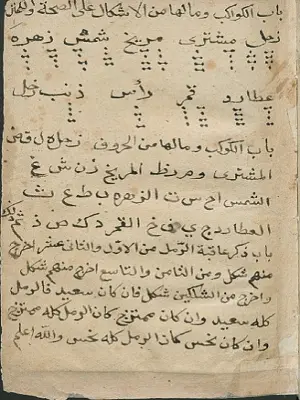 باب الكواكب وما لها من الاشكال على الصحة والكمال
زحل مشتري مريخ شمس زهره
عطارد قمر رأس ذنب زحل
باب الكواكب وما لها من الحروف زحل ه ل ف ض
المشتري و م ر ظ المريخ ز ن ش غ
الشمس ا ح س ت الزهره ب ط ع ث
العطارد ج ي ف خ القمر د ك ص ذ
باب ذكر عاقبة الرمل من الاول والثاني عشر اخرج
منهم شكل ومن الثامن والتاسع اخرج منهم شكل
واخرج من الشكلين شكل فان كان سعيد فالرمل
كله سعيد وان كان ممتزج كان الرمل كله ممتزج
وان كان نحس كان الرمل كله نحس والله اعلم